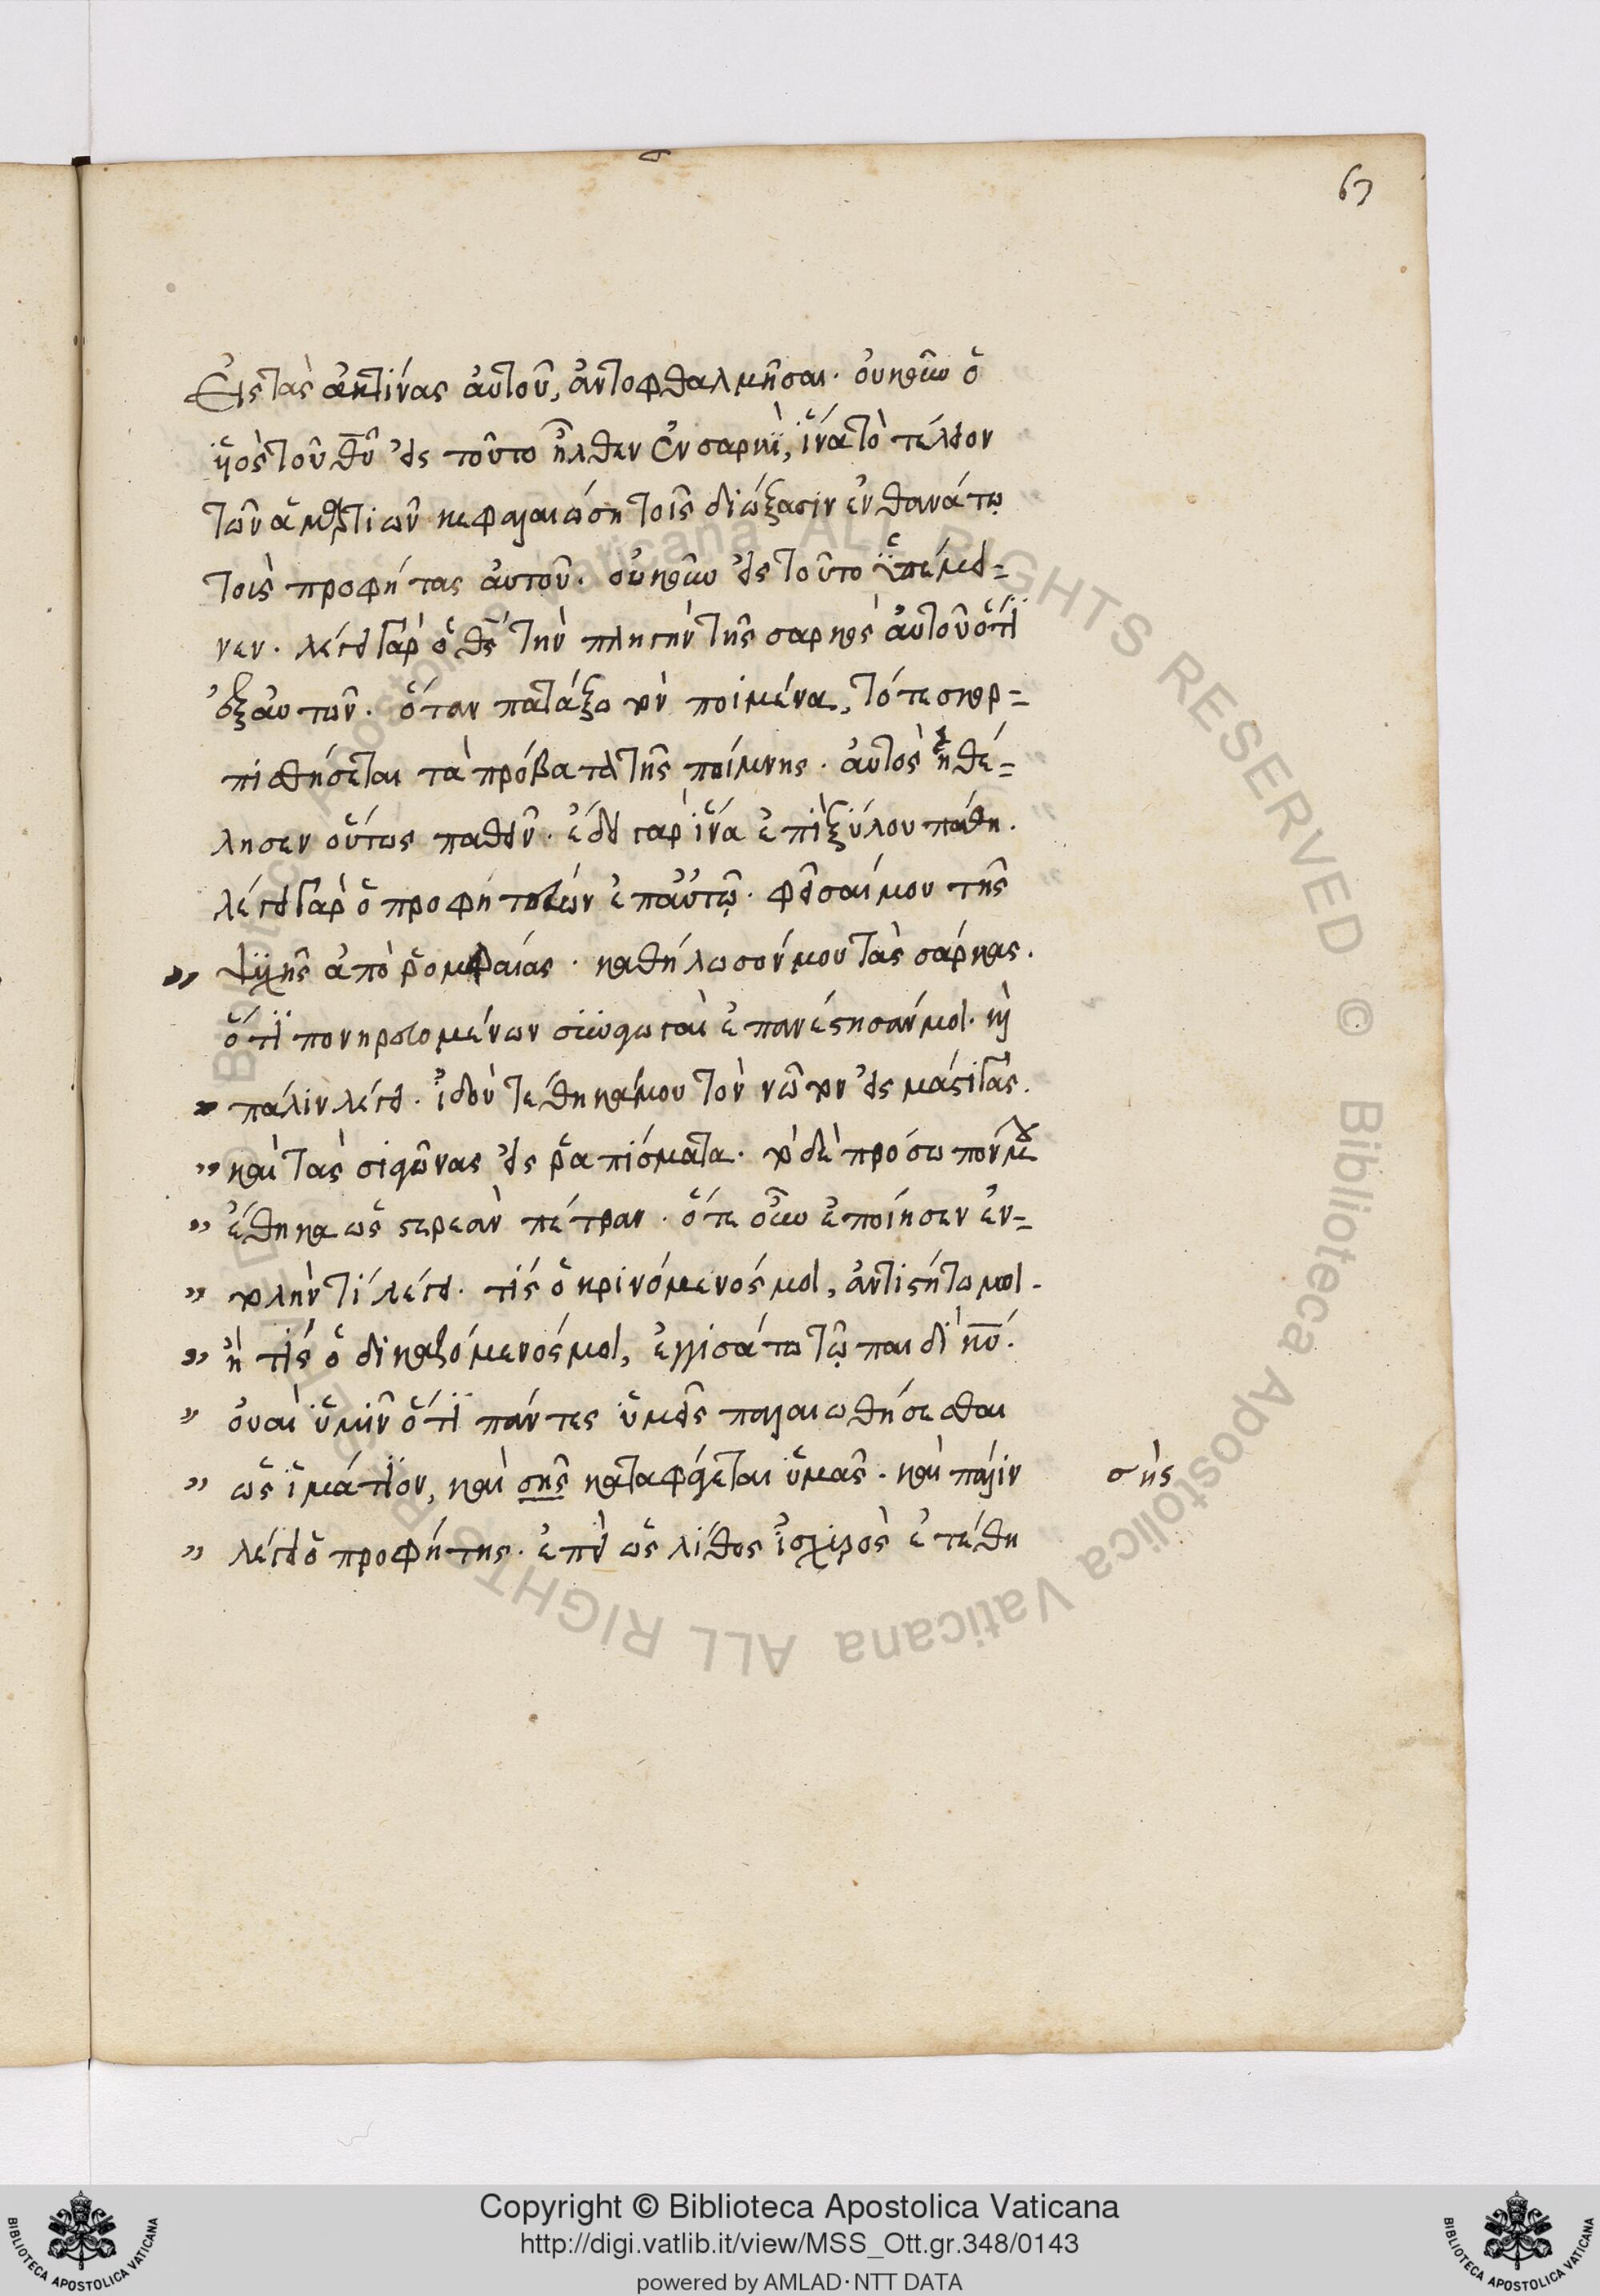 63
Εἰς τὰς ἀκτίνας ἀυτοῦ, ἀντοφθαλμῆσαι. ὀυκοῦν ὁ
ὑιὸς τοῦ θῦ εἰς τοῦτο ἦλθεν ἐν σαρκὶ, ἵνα τὸ τέλειον
τῶν ἁμαρτιῶν κεφαλαιώση τοῖς διώξασιν ἐν θανάτῳ
τοὶς προφήτας ἀυτοῦ. οὐκοῦν εἰς τοῦτο ὑπέμει=
νεν. λέγει γὰρ ὁ θς τὴν πληγὴν τῆς σαρκὸς ἀυτοῦ ὅτι
ἐξ ἀυτῶν. ὅταν πατάξω τὸν ποιμένα, τότε σκορ=
πισθήσεται τὰ πρόβατα τῆς ποίμνης. ἀυτὸς ἠθέ=
λησεν οὕτως παθεῖν. ἔδει γὰρ ἵνα ἐπὶ ξύλου πάθη.
λέγει γὰρ ὁ προφητεύων ἐπ ἀυτῷ. φεῖσαί μου τῆς
" ψυχῆς ἀπὸ ῥομφαίας. καθήλωσόν μου τὰς σάρκας.
ὅτι πονηρευομένων συναγωγαὶ ἐπανέστησάν μοι. κὶ
" πάλιν λέγει. ἰδοὺ τέθηκά μου τὸν νῶτον εἰς μάστιγας.
" καὶ τὰς σιαγόνας εἰς ῥαπίσματα. τὸ δὲ πρόσωπόν μου
" ἔθηκα ὡς στερεὰν πέτραν. ὅτε οὖν ἐποίησεν ἐν=
" τολὴν τί λέγει. τίς ὁ κρινόμενός μοι, ἀντιστήτω μοι.
" ἢ τίς ὁ δικαζόμενός μοι, ἐγγισάτω τῷ παιδὶ κυ.
" ὀυαὶ ὑμῖν ὅτι πάντες ὑμεῖς παλαιωθήσεσθαι
" ὡς ἱμάτιον, καὶ σῆς καταφάγεται ὑμᾶς. καὶ πάλιν
σὴς
" λέγει ὁ προφήτης. ἐπεὶ ὡς λίθος ἰσχιρὸς ἐτέθη
Copyright © Biblioteca Apostolica Vaticana
http://digi.vatlib.it/view/MSS_Ott.gr.348/0143
powered by AMLAD·NTT DATA